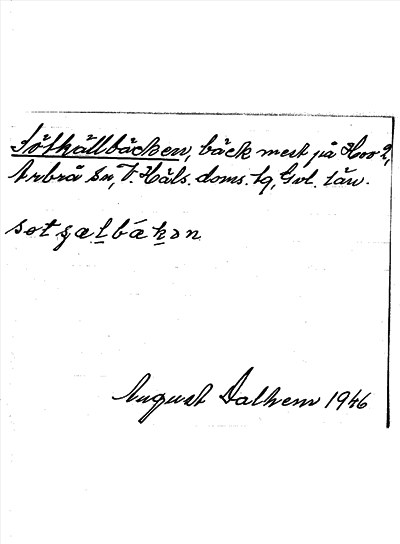 Sötkällbäcken, bäck mest på Hov 2,
Arbrå sn, V. Häls. doms. tg, Gvl. län.
søtʂælbákən
August Dalhem 1946